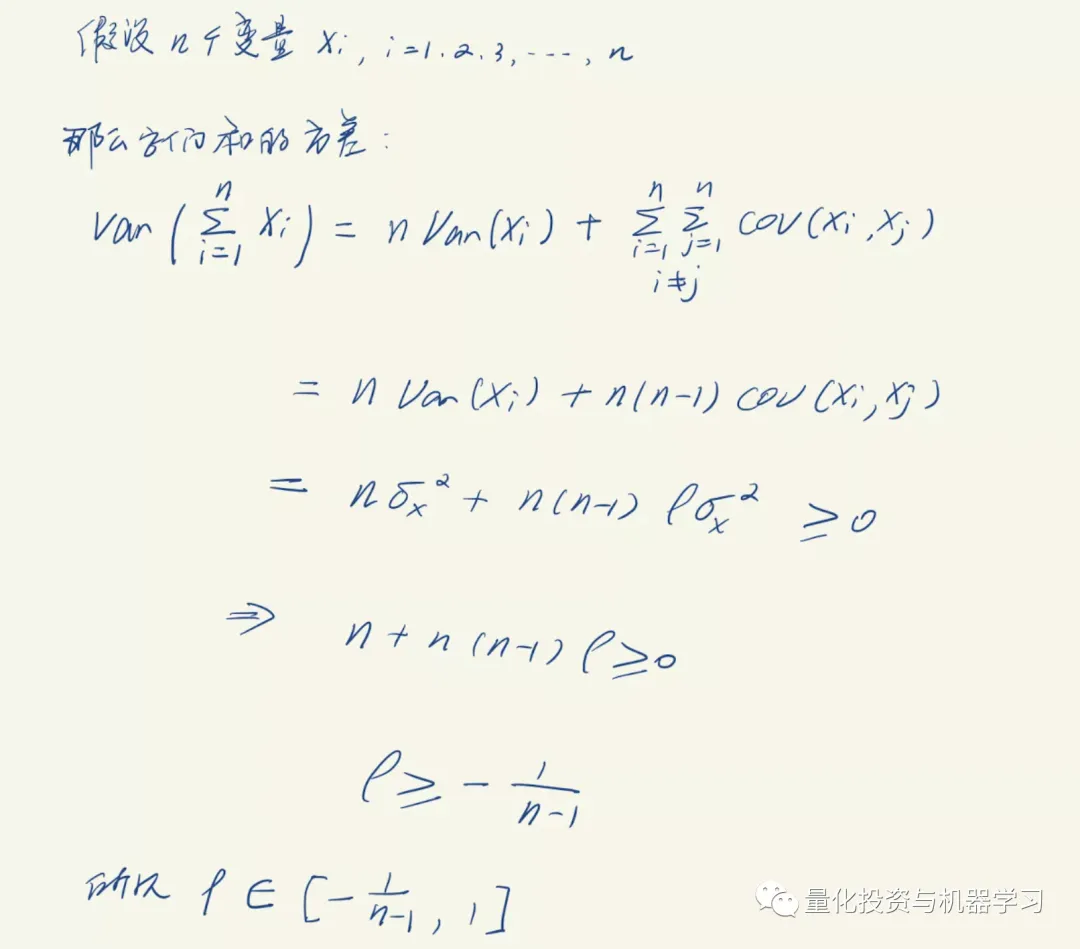 假设 n 个变量 Xi, i=1.2.3, ---, n
那么它们和的方差:
Var(∑_{i=1}^{n} Xi) = n Var(Xi) + ∑_{i=1}^{n} ∑_{j=1}^{n} cov(Xi, Xj)
i≠j
= n Var(Xi) + n(n-1) cov(Xi, Xj)
= nσ_x² + n(n-1) ρσ_x² ≥ 0
⇒ n + n(n-1) ρ ≥ 0
ρ ≥ - 1/(n-1)
所以 ρ ∈ [-1/(n-1), 1]
量化投资与机器学习